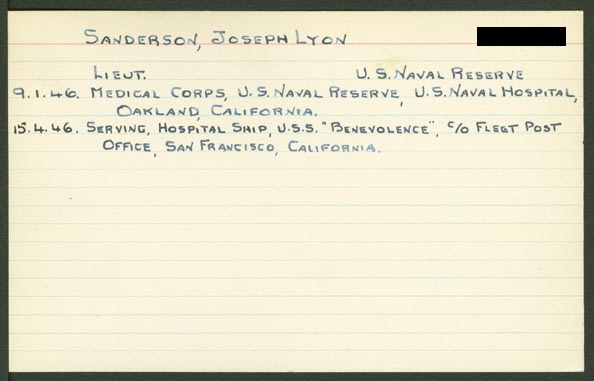 SANDERSON, JOSEPH LYON
LIEUT. U.S. NAVAL RESERVE
9.1.46. MEDICAL CORPS, U.S. NAVAL RESERVE, U.S. NAVAL HOSPITAL,
OAKLAND, CALIFORNIA.
15.4.46. SERVING, HOSPITAL SHIP, U.S.S. "BENEVOLENCE", C/O FLEET POST
OFFICE, SAN FRANCISCO, CALIFORNIA.